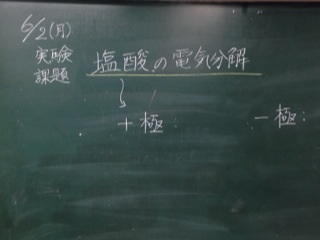 6/2(月)
実験
課題
塩酸の電気分解
+極:
-極: